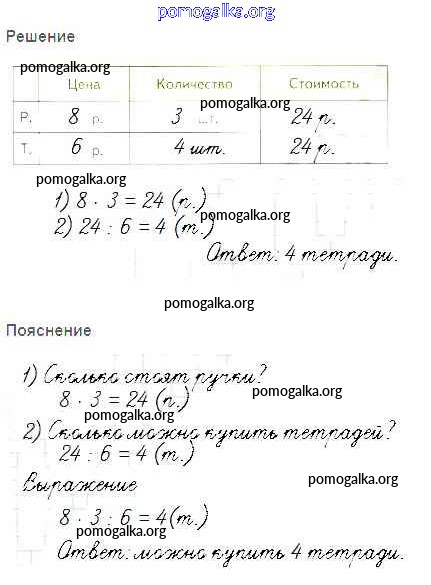 pomogalka.org
Решение
pomogalka.org
Цена Количество Стоимость
pomogalka.org
Р. 8 р. 3 шт. 24 р.
Т. 6 р. 4 шт. 24 р.
pomogalka.org
1) 8 · 3 = 24 (р.)
pomogalka.org
2) 24 : 6 = 4 (т.)
Ответ: 4 тетради.
pomogalka.org
Пояснение
1) Сколько стоят ручки?
pomogalka.org
8 · 3 = 24 (р.)
pomogalka.org
2) Сколько можно купить тетрадей?
24 : 6 = 4 (т.)
pomogalka.org
Выражение
8 · 3 : 6 = 4 (т.)
pomogalka.org
Ответ: можно купить 4 тетради.